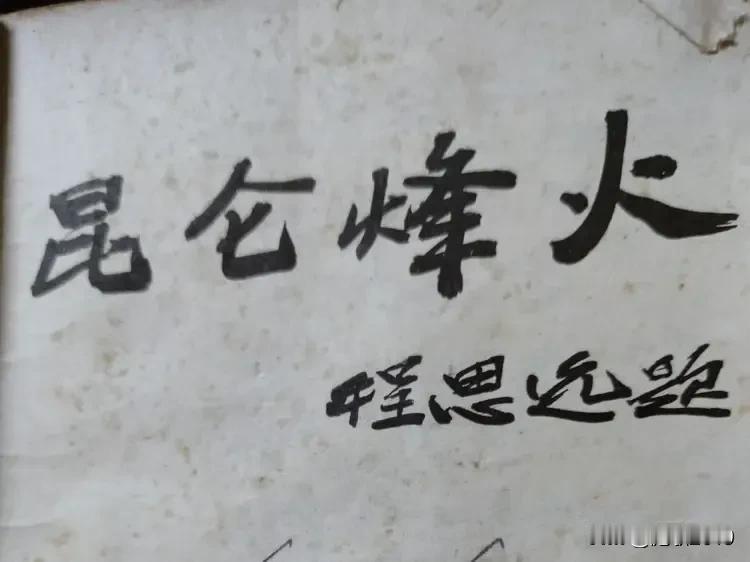 昆仑烽火
程思远题